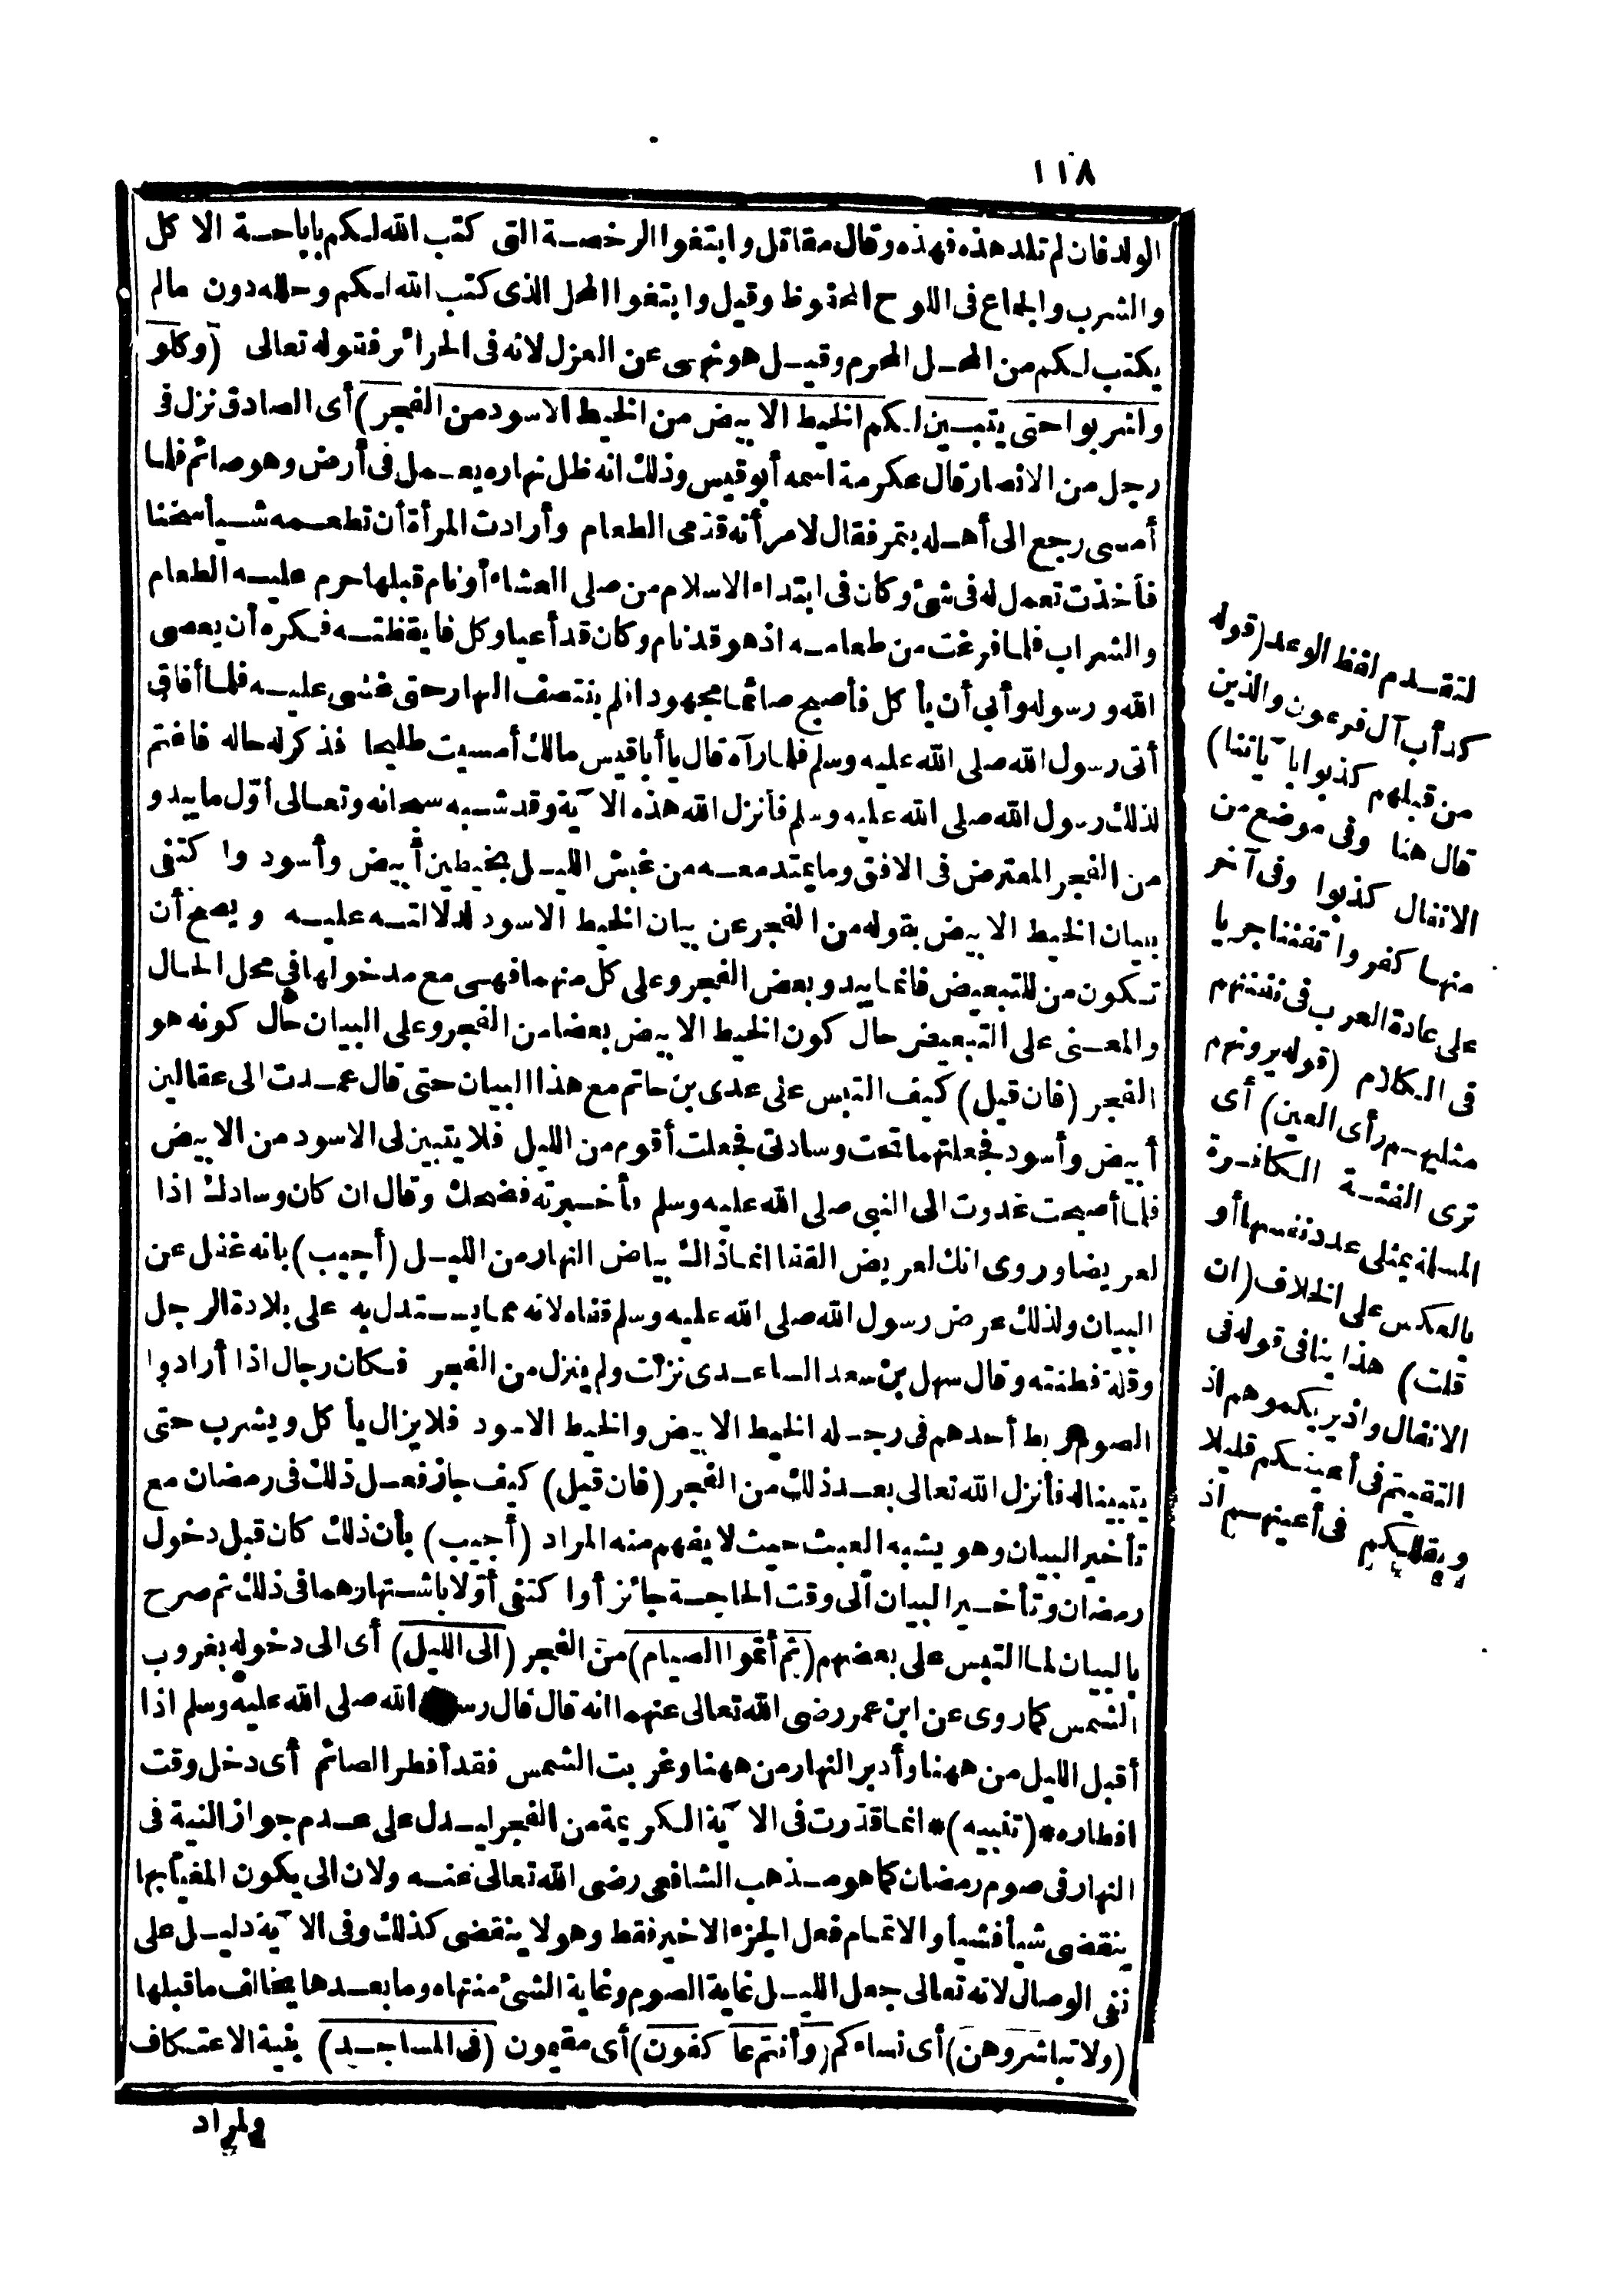 ١١٨
الولد فان لم تلد هذه فهذه وقال مقاتل وابتغوا الرخصة التى كتب الله لكم باباحة الا كل
والشرب والجماع فى اللوح المحفوظ وقيل وابتغوا المحل الذى كتب الله لكم وحلله دون مالم
يكتب لكم من المحل المحرم وقيل هو نهى عن العزل لانه فى الحرائر فقوله تعالى (وكلو
واشربوا حتى يتبين لكم الخيط الابيض من الخيط الاسود من الفجر) أى الصادق نزل فى
رجل من الانصار قال عكرمة اسمه أبو قيس وذلك انه ظل نهاره يعمل فى أرض وهو صائم فلما
أمسى رجع الى أهله بتمر فقال لامرأته قدمى الطعام وأرادت المرأة أن تطعمه شيأ سخنا
فأخذت تعمل له فى شئ وكان فى ابتداء الاسلام من صلى العشاء أو نام قبلها حرم عليه الطعام
والشراب فلما فرغت من طعامه اذ هو قد نام وكان قد أعيا وكل فايقظته فكره أن يعصى
الله ورسوله وأبى أن يأكل فأصبح صائما مجهودا فلم ينتصف النهار حتى غشى عليه فلما أفاق
أتى رسول الله صلى الله عليه وسلم فلما رآه قال يا أبا قيس مالك أمسيت طليحا فذكر له حاله فاغتم
لذلك رسول الله صلى الله عليه وسلم فأنزل الله هذه الآية وقد شبه سبحانه وتعالى أول ما يبدو
من الفجر المعترض فى الافق وما يمتد معه من غبش الليل بخيطين أبيض وأسود واكتفى
ببيان الخيط الابيض بقوله من الفجر عن بيان الخيط الاسود لدلالته عليه ويصح أن
تكون من للتبعيض فانما يبدو بعض الفجر وعلى كل منهما فهى مع مدخولها فى محل الحال
والمعنى على التبعيض حال كون الخيط الابيض بعضا من الفجر وعلى البيان حال كونه هو
الفجر (فان قيل) كيف التبس على عدى بن حاتم مع هذا البيان حتى قال عمدت الى عقالين
أبيض وأسود فجعلتهما تحت وسادتى فجعلت أقوم من الليل فلا يتبين لى الاسود من الابيض
فلما أصبحت غدوت الى النبى صلى الله عليه وسلم فأخبرته فضحك وقال ان كان وسادك اذا
لعريضا وروى انك لعريض القفا انما ذاك بياض النهار من الليل (أجيب) بانه غفل عن
البيان ولذلك عرض رسول الله صلى الله عليه وسلم قفاه لانه مما يستدل به على بلادة الرجل
وقلة فطنته وقال سهل بن سعد الساعدى نزلت ولم ينزل من الفجر فكان رجال اذا أرادوا
الصوم ربط أحدهم فى رجله الخيط الابيض والخيط الاسود فلا يزال يأكل ويشرب حتى
يتبينا له فأنزل الله تعالى بعد ذلك من الفجر (فان قيل) كيف جاز فعل ذلك فى رمضان مع
تأخير البيان وهو يشبه العبث حيث لا يفهم منه المراد (أجيب) بأن ذلك كان قبل دخول
رمضان وتأخير البيان الى وقت الحاجة جائز أو اكتفى أولا باشتهارهما فى ذلك ثم صرح
بالبيان لما التبس على بعضهم (ثم أتموا الصيام) من الفجر (الى الليل) أى الى دخوله بغروب
الشمس كما روى عن ابن عمر رضى الله تعالى عنهما انه قال قال رسول الله صلى الله عليه وسلم اذا
أقبل الليل من ههنا وأدبر النهار من ههنا وغربت الشمس فقد أفطر الصائم أى دخل وقت
افطاره * (تنبيه) * انما قدرت فى الآية الكريمة من الفجر ليدل على عدم جواز النية فى
النهار فى صوم رمضان كما هو مذهب الشافعى رضى الله تعالى عنه ولان الى يكون المغيا بها
ينقضى شيأ فشيأ والاتمام فعل الجزء الاخير فقط وهو لا ينقضى كذلك وفى الآية دليل على
نفى الوصال لانه تعالى جعل الليل غاية الصوم وغاية الشئ منتهاه وما بعدها يخالف ما قبلها
(ولا تباشروهن) أى نساءكم (وأنتم عاكفون) أى مقيمون (فى المساجد) بنية الاعتكاف
والمراد
لتقدم لفظ الوعد (قوله
كدأب آل فرعون والذين
من قبلهم كذبوا بآياتنا)
قال هنا وفى موضع من
الانفال كذبوا وفى آخر
منها كفروا تفننا جريا
على عادة العرب فى تفننهم
فى الكلام (قوله يرونهم
مثليهم رأى العين) أى
ترى الفئة الكافرة
المسلمة مثلى عدد نفسها أو
بالعكس على الخلاف (ان
قلت) هذا ينافى قوله فى
الانفال واذ يريكموهم اذ
التقيتم فى أعينكم قليلا
ويقللكم فى أعينهم اذ